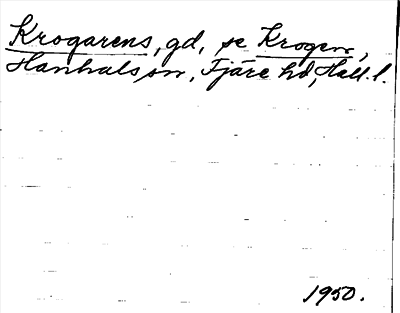 Krogarens, gd, se Krogen,
Hanhals sn, Fjäre hd, Hall. l.
1950.